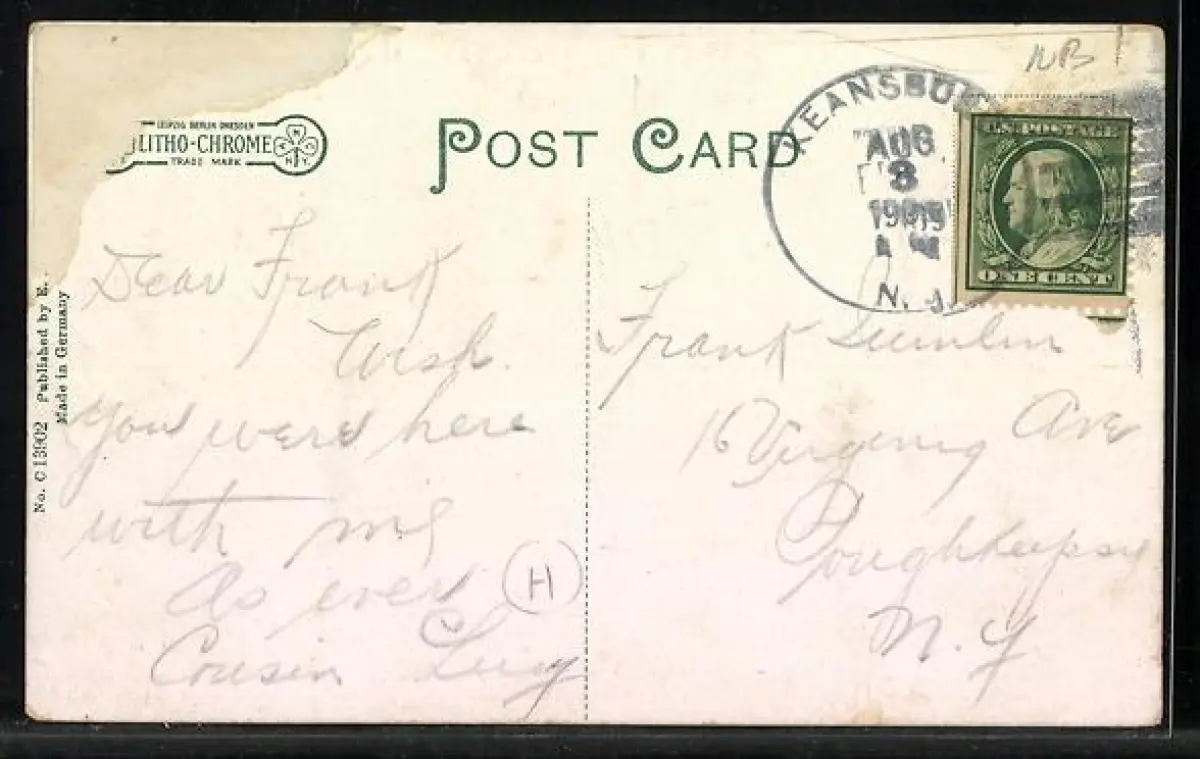 LEIPZIG BERLIN DRESDEN
LITHO-CHROME
TRADE MARK
N Y
POST CARD
KEANSBU
AUG
3
N. J.
NB
U.S. POSTAGE
ONE CENT
No. C 13902 Published by E.
Made in Germany
Dear Frank
Wish
you were here
with me
As ever
Cousin
H
Frank
16 Ave
Poughkeepsy
N. Y